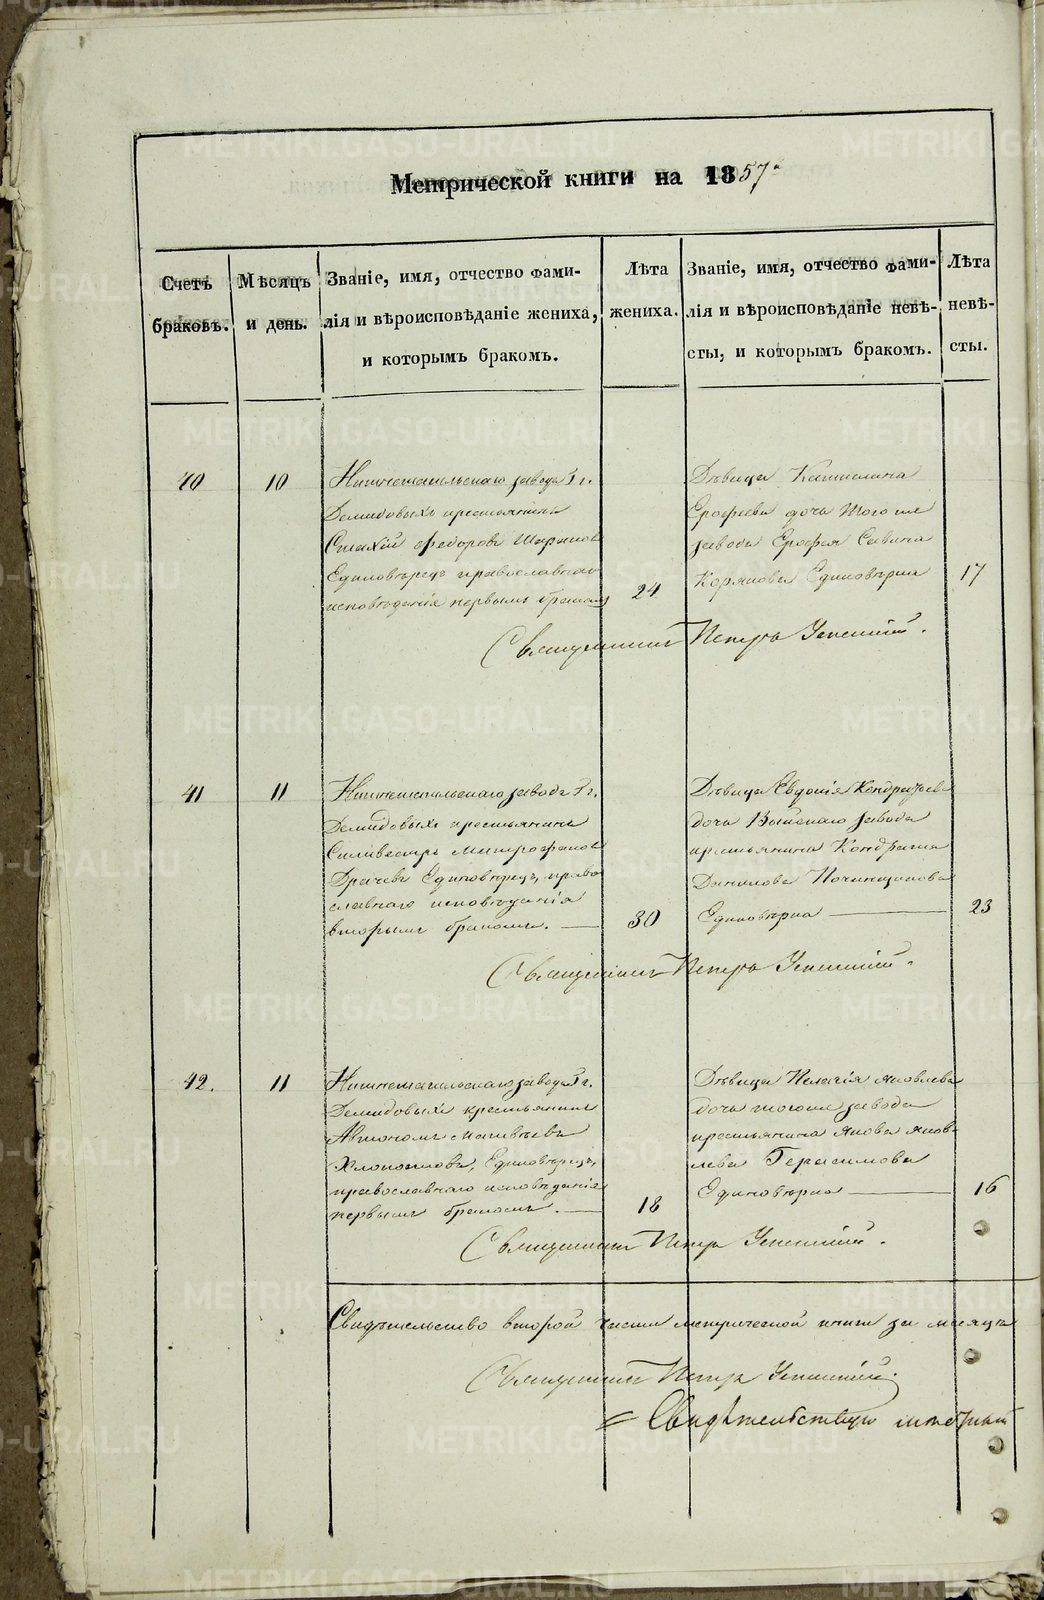 Метрической книги на 1857
Счетъ браковъ.
Мѣсяцъ и день.
Званіе, имя, отчество фами-
лія и вѣроисповѣданіе жениха,
и которымъ бракомъ.
Лѣта
жениха.
Званіе, имя, отчество фами-
лія и вѣроисповѣданіе невѣ-
сты, и которымъ бракомъ.
Лѣта
невѣ-
сты.
40
10
Нижнетагильскаго завода Гг.
Демидовыхъ крестьянинъ
Федоровъ
Единовѣрецъ православнаго
исповѣданія первымъ бракомъ
24
Дѣвица Катилина
Ерофеева дочь того же
завода Ерофея Савина
Корякова Единовѣрка
17
Священникъ Петръ Успенскій.
41
11
Нижнетагильскаго завода Гг.
Демидовыхъ крестьянинъ
Силивестръ Митрофановъ
Драчевъ Единовѣрецъ, право
славнаго исповѣданія
вторымъ бракомъ.
30
Дѣвица Евдокія Кондратьева
дочь Выйскаго завода
крестьянина Кондратия
Данилова
Единовѣрка
23
Священникъ Петръ Успенскій.
42.
11
Нижнетагильскаго завода Гг.
Демидовыхъ крестьянинъ
Автономъ Матвѣевъ
Единовѣрецъ,
православнаго исповѣданія
первымъ бракомъ.
18
Дѣвица Пелагія Яковлева
дочь того же завода
крестьянина Якова Яков-
лева Герасимова
Единовѣрка
16
Священникъ Петръ Успенскій.
Свидѣтельство второй части метрической книги за месяцъ
Священникъ Петръ Успенскій.
= Свидѣтельствую
METRIKI.GASO-URAL.RU